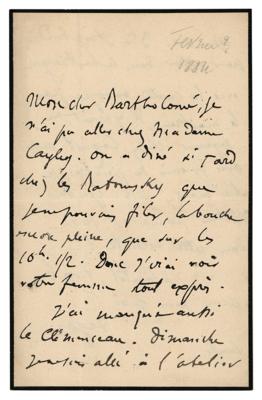 Fevrier ?
1884
Mon cher Bartholomé, je
n'ai pu aller chez Madame
Cayley. on a diné si tard
chez les que
je pouvais filer, la bouche
encore pleine, que sur les
10h. 1/2. Donc j'irai voir
votre femme tout exprès.
J'ai manqué aussi
le Clémenceau. Dimanche
je suis allé à l'atelier